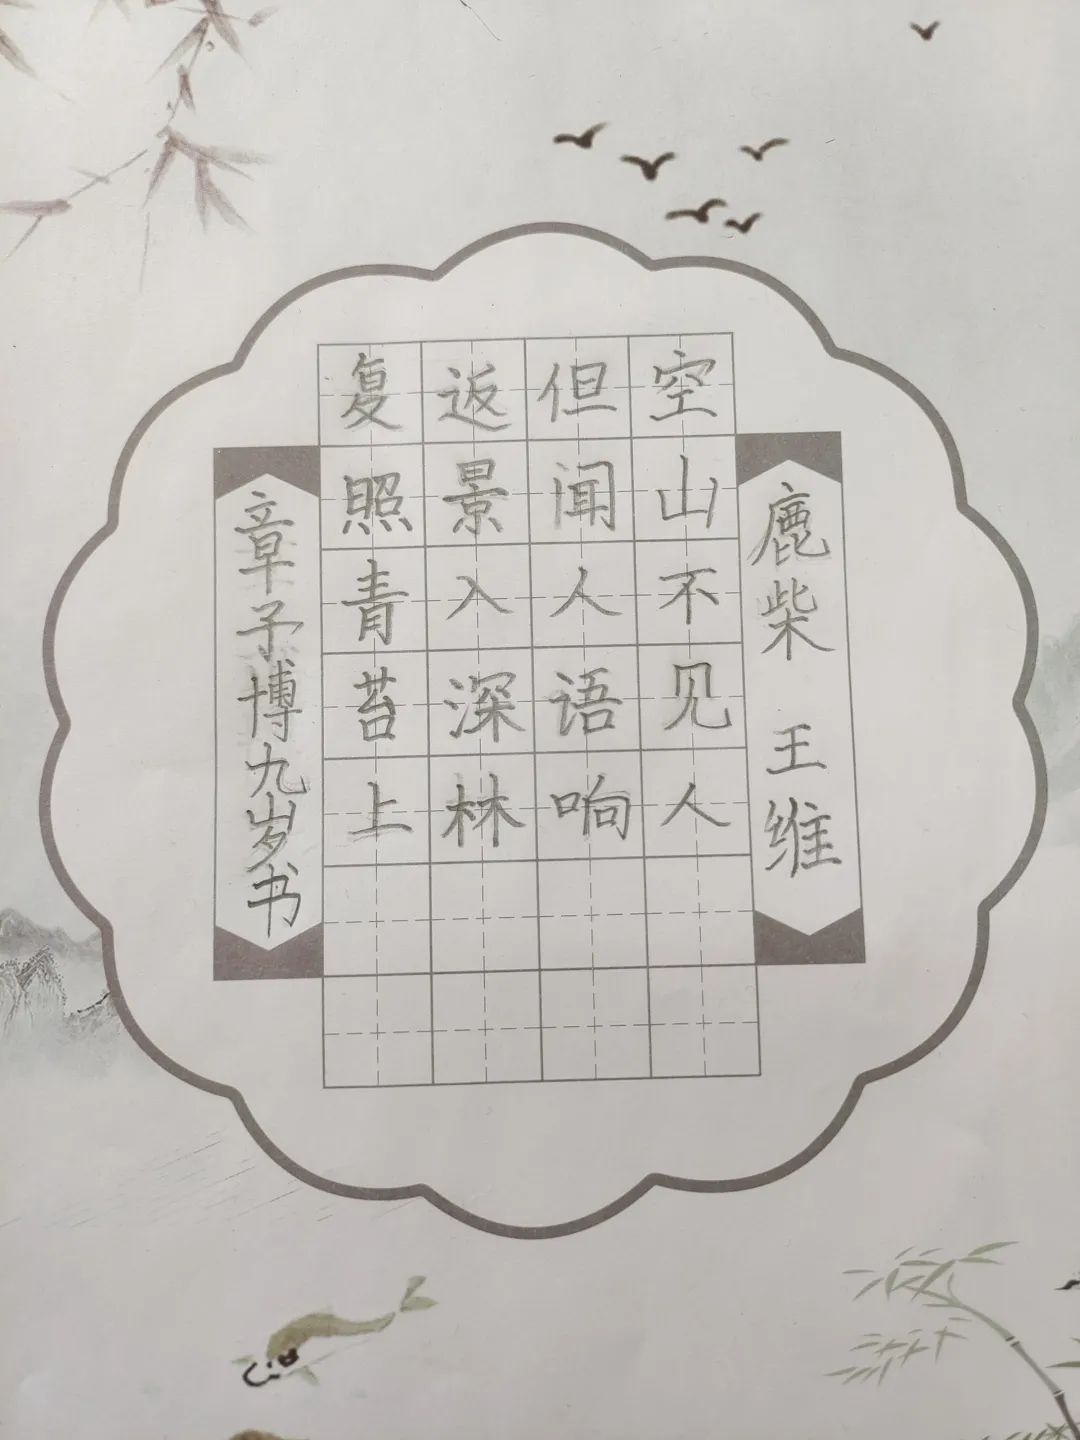 鹿柴 王维
空山不见人
但闻人语响
返景入深林
复照青苔上
章子博九岁书